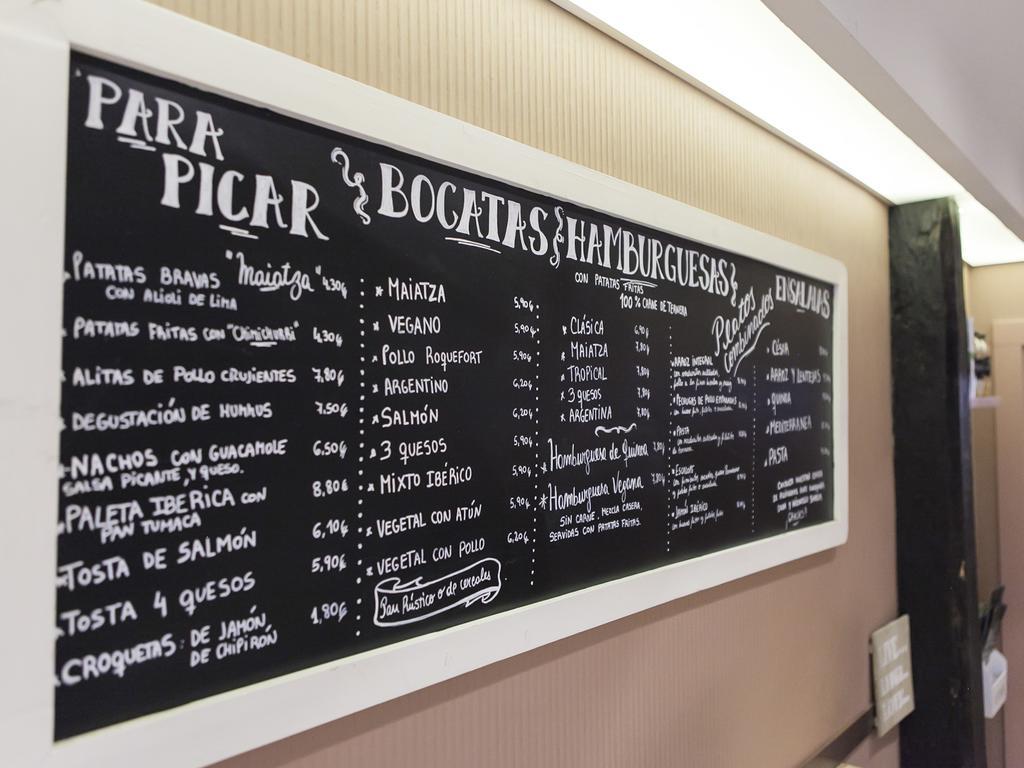 PARA
PICAR
PATATAS BRAVAS "Maiatza" 4,30€
CON ALIOLI DE LIMA
PATATAS FRITAS CON "CHIMICHURRI" 4,30€
ALITAS DE POLLO CRUJIENTES 7,80€
DEGUSTACIÓN DE HUMMUS 7,50€
NACHOS CON GUACAMOLE 6,50€
SALSA PICANTE, Y QUESO.
PALETA IBERICA CON 8,80€
PAN TUMACA
TOSTA DE SALMÓN 6,10€
TOSTA 4 QUESOS 5,90€
CROQUETAS: DE JAMÓN, 1,80€
DE CHIPIRÓN
BOCATAS
MAIATZA 5,90€
VEGANO 5,90€
POLLO ROQUEFORT 5,90€
ARGENTINO 6,20€
SALMÓN 6,20€
3 QUESOS 5,90€
MIXTO IBÉRICO 5,90€
VEGETAL CON ATÚN 5,90€
VEGETAL CON POLLO 6,20€
Pan Rústico o de cereales
HAMBURGUESAS
CON PATATAS FRITAS
100% CARNE DE TERNERA
CLÁSICA 6,90€
MAIATZA 7,80€
TROPICAL 7,80€
3 QUESOS 7,80€
ARGENTINA 7,80€
Hamburguesa de Quinoa 7,80€
Hamburguesa Vegana 7,80€
SIN CARNE, MEZCLA CASERA,
SERVIDAS CON PATATAS FRITAS.
Platos
Combinados
ARROZ INTEGRAL
PECHUGAS DE POLLO EMPANADAS
PASTA
ESCALOPE
JAMÓN IBÉRICO
ENSALADAS
CÉSAR
ARROZ Y LENTEJAS
QUINOA
MEDITERRANEA
PASTA